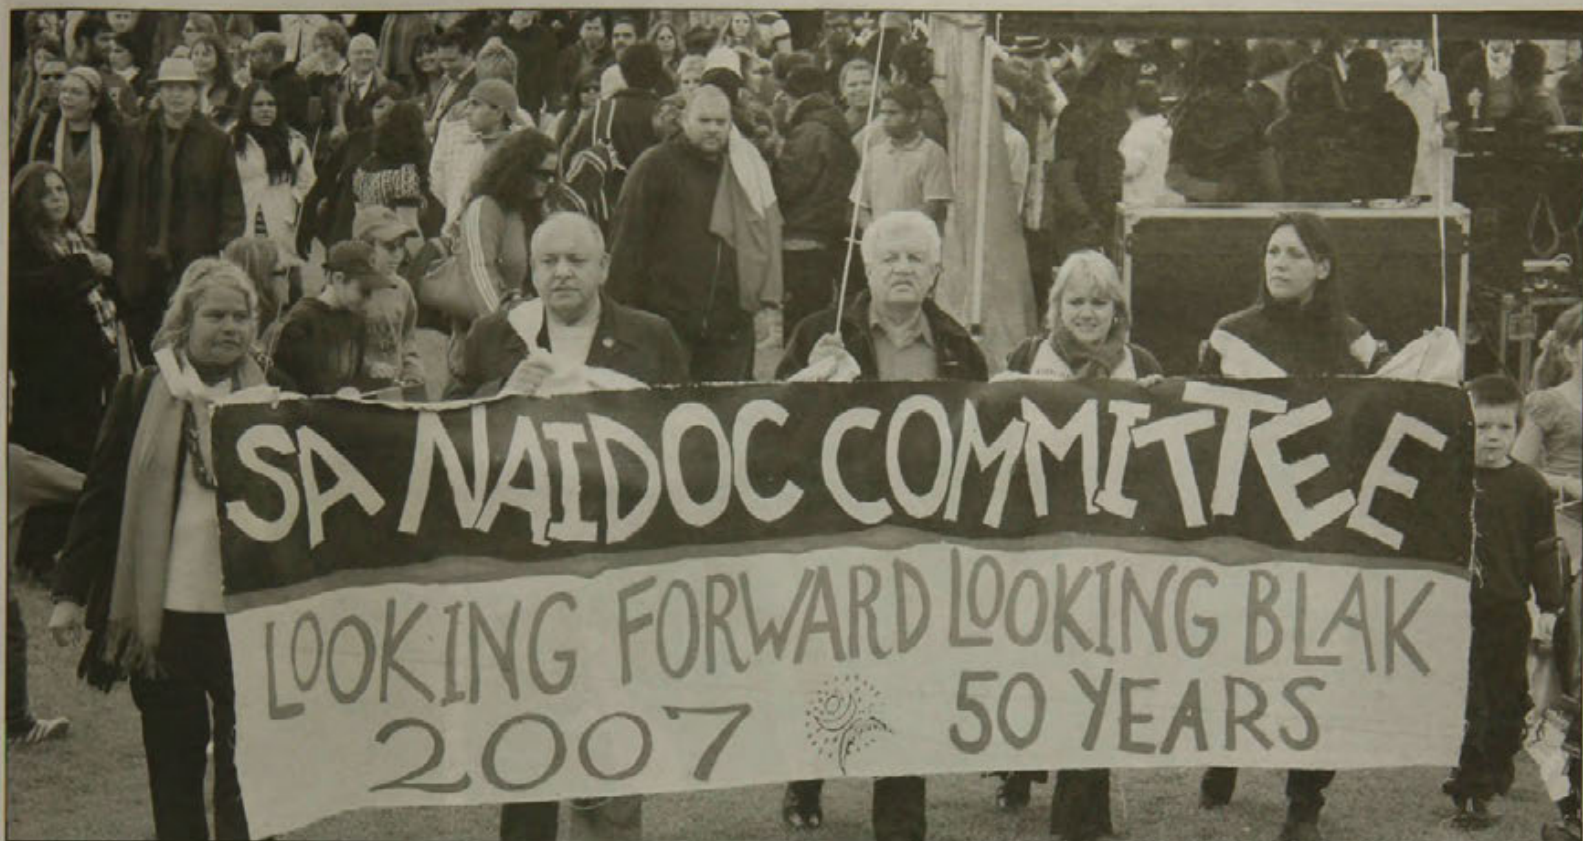 SA NAIDOC COMMITTEE
LOOKING FORWARD LOOKING BLAK
2007 50 YEARS